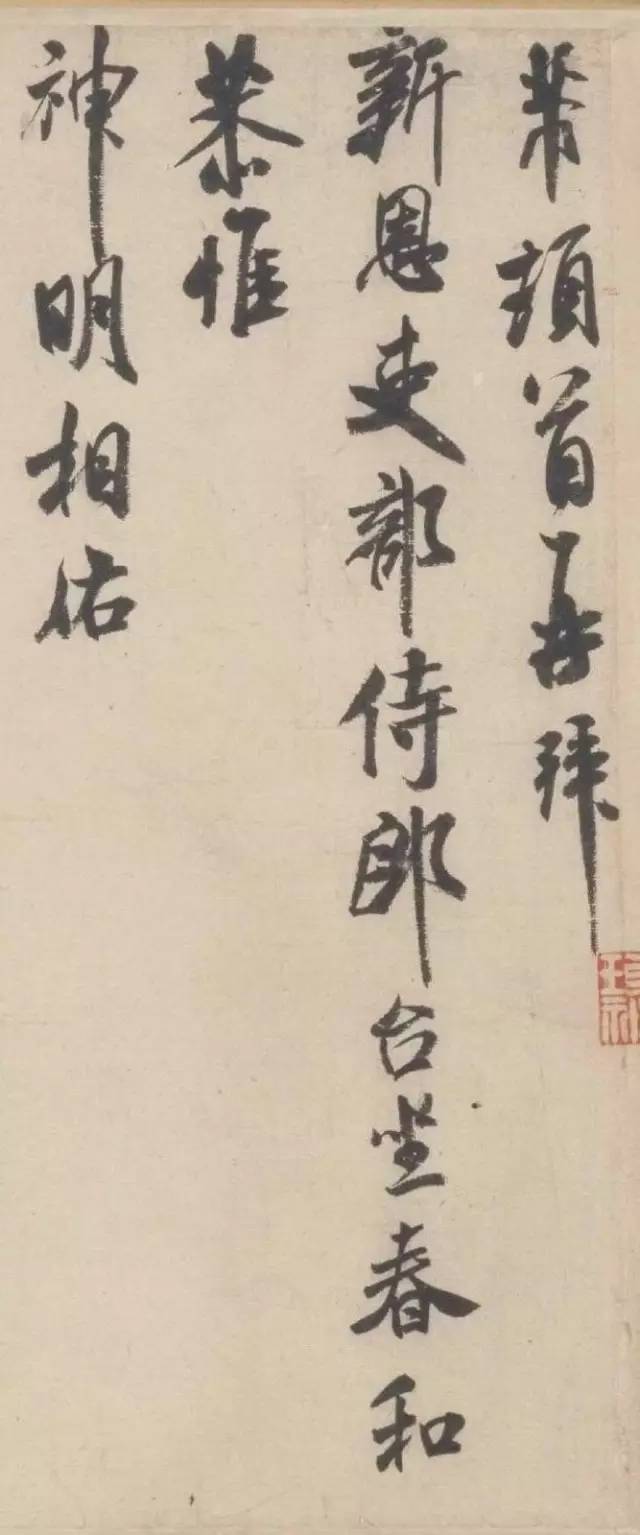 芾頓首再拜
新恩吏部侍郎台坐春和
恭惟
神明相佑